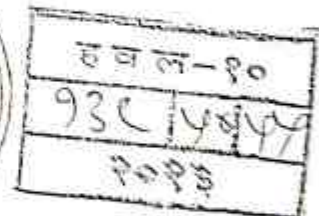 ह व ल-१०
९३८ ५४ ५५
२०१३